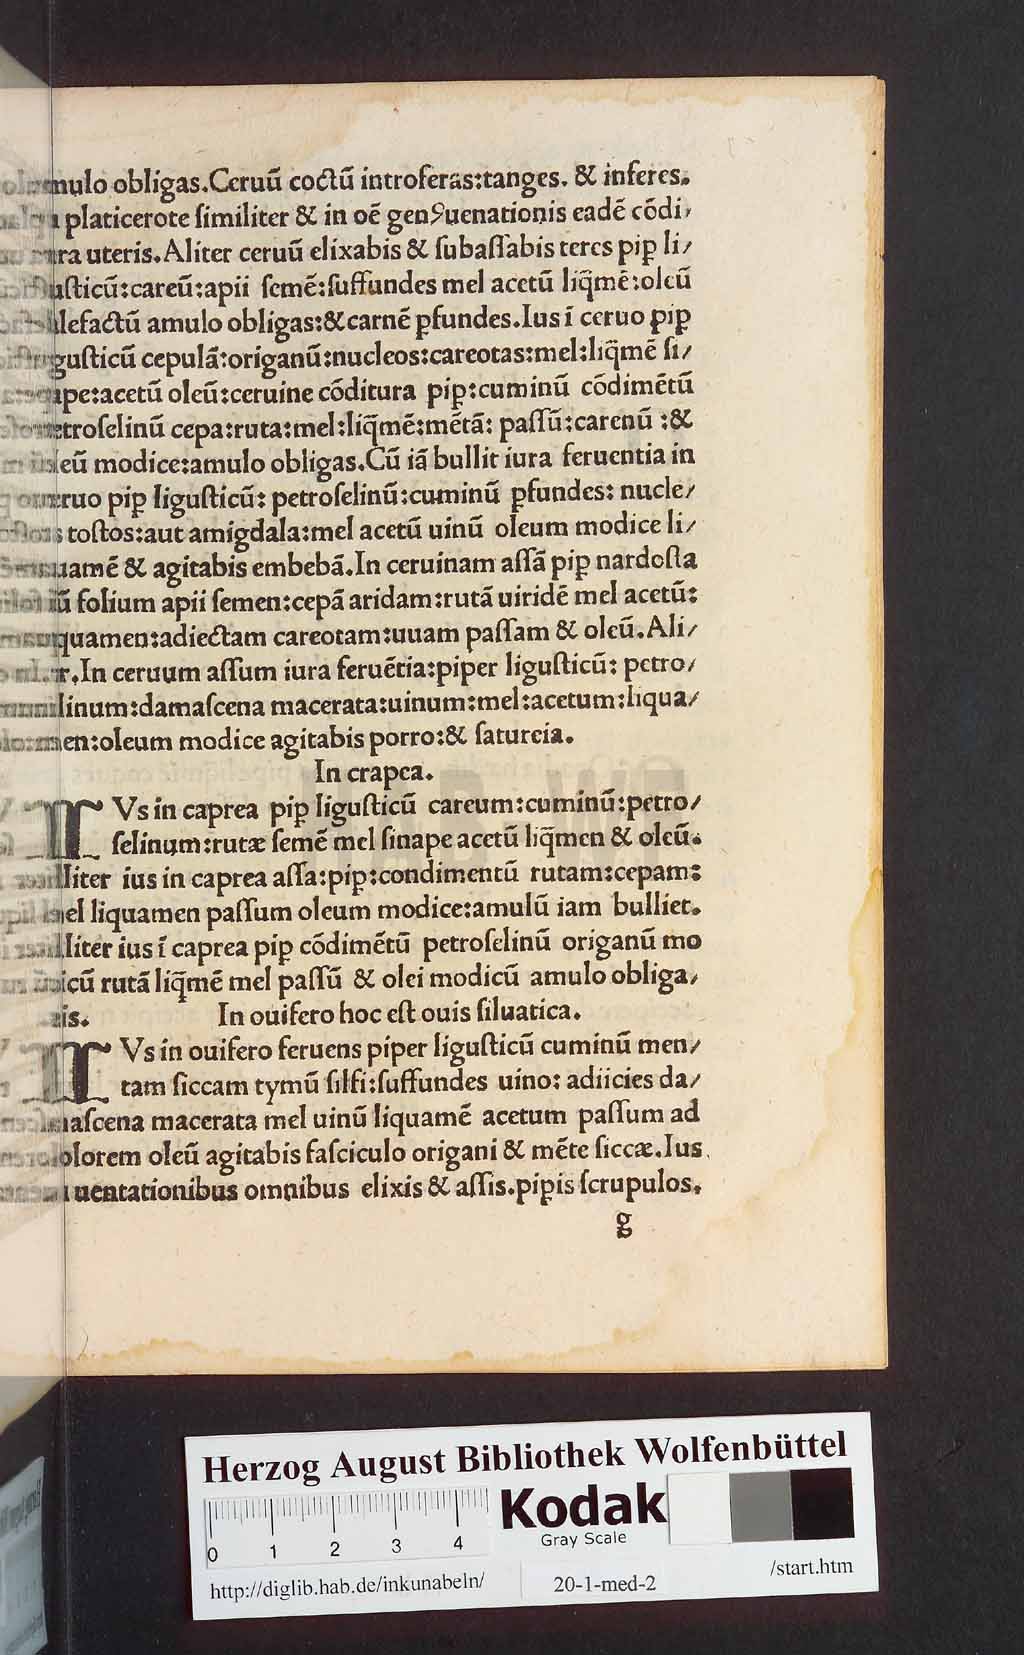 mulo obligas.Ceruū coctū introferas:tanges. & inferes.
platicerote ſimiliter & in oē genꝰuenationis eadē cōdi/
ra uteris.Aliter ceruū elixabis & ſubaſſabis teres pip̱ li/
uſticū:careū:apii ſemē:ſuffundes mel acetū liq̄mē:oleū
lefactū amulo obligas:&carnē p̱fundes.Ius ī ceruo pip̱
guſticū cepulā:origanū:nucleos:careotas:mel:liq̄mē ſi/
ape:acetū oleū:ceruine cōditura pip̱:cuminū cōdimētū
etroſelinū cepa:ruta:mel:liq̄mē:mētā: paſſū:carenū :&
leū modice:amulo obligas.Cū iā bullit iura feruentia in
eruo pip̱ liguſticū: petroſelinū:cuminū p̱fundes: nucle/
s toſtos:aut amigdala:mel acetū uinū oleum modice li/
uamē & agitabis embebā.In ceruinam aſſā pip̱ nardoſta
iū folium apii ſemen:cepā aridam:rutā uiridē mel acetū:
quamen:adiectam careotam:uuam paſſam & oleū.Ali/
r.In ceruum aſſum iura feruētia:piper liguſticū: petro/
linum:damaſcena macerata:uinum:mel:acetum:liqua/
men:oleum modice agitabis porro:& ſatureia.
In crapea.
IVs in caprea pip̱ liguſticū careum:cuminū:petro/
ſelinum:rutæ ſemē mel ſinape acetū liq̄men & oleū.
liter ius in caprea aſſa:pip̱:condimentū rutam:cepam:
el liquamen paſſum oleum modice:amulū iam bulliet.
liter ius ī caprea pip̱ cōdimētū petroſelinū origanū mo
icū rutā liq̄mē mel paſſū & olei modicū amulo obliga/
is. In ouifero hoc eſt ouis ſiluatica.
IVs in ouifero feruens piper liguſticū cuminū men/
tam ſiccam tymū ſilfi:ſuffundes uino: adiicies da/
maſcena macerata mel uinū liquamē acetum paſſum ad
olorem oleū agitabis faſciculo origani & mēte ſiccæ.Ius
uentationibus omnibus elixis & aſſis.pip̱is ſcrupulos.
g
Herzog August Bibliothek Wolfenbüttel
Kodak
Gray Scale
0 1 2 3 4
http://diglib.hab.de/inkunabeln/ 20-1-med-2 /start.htm